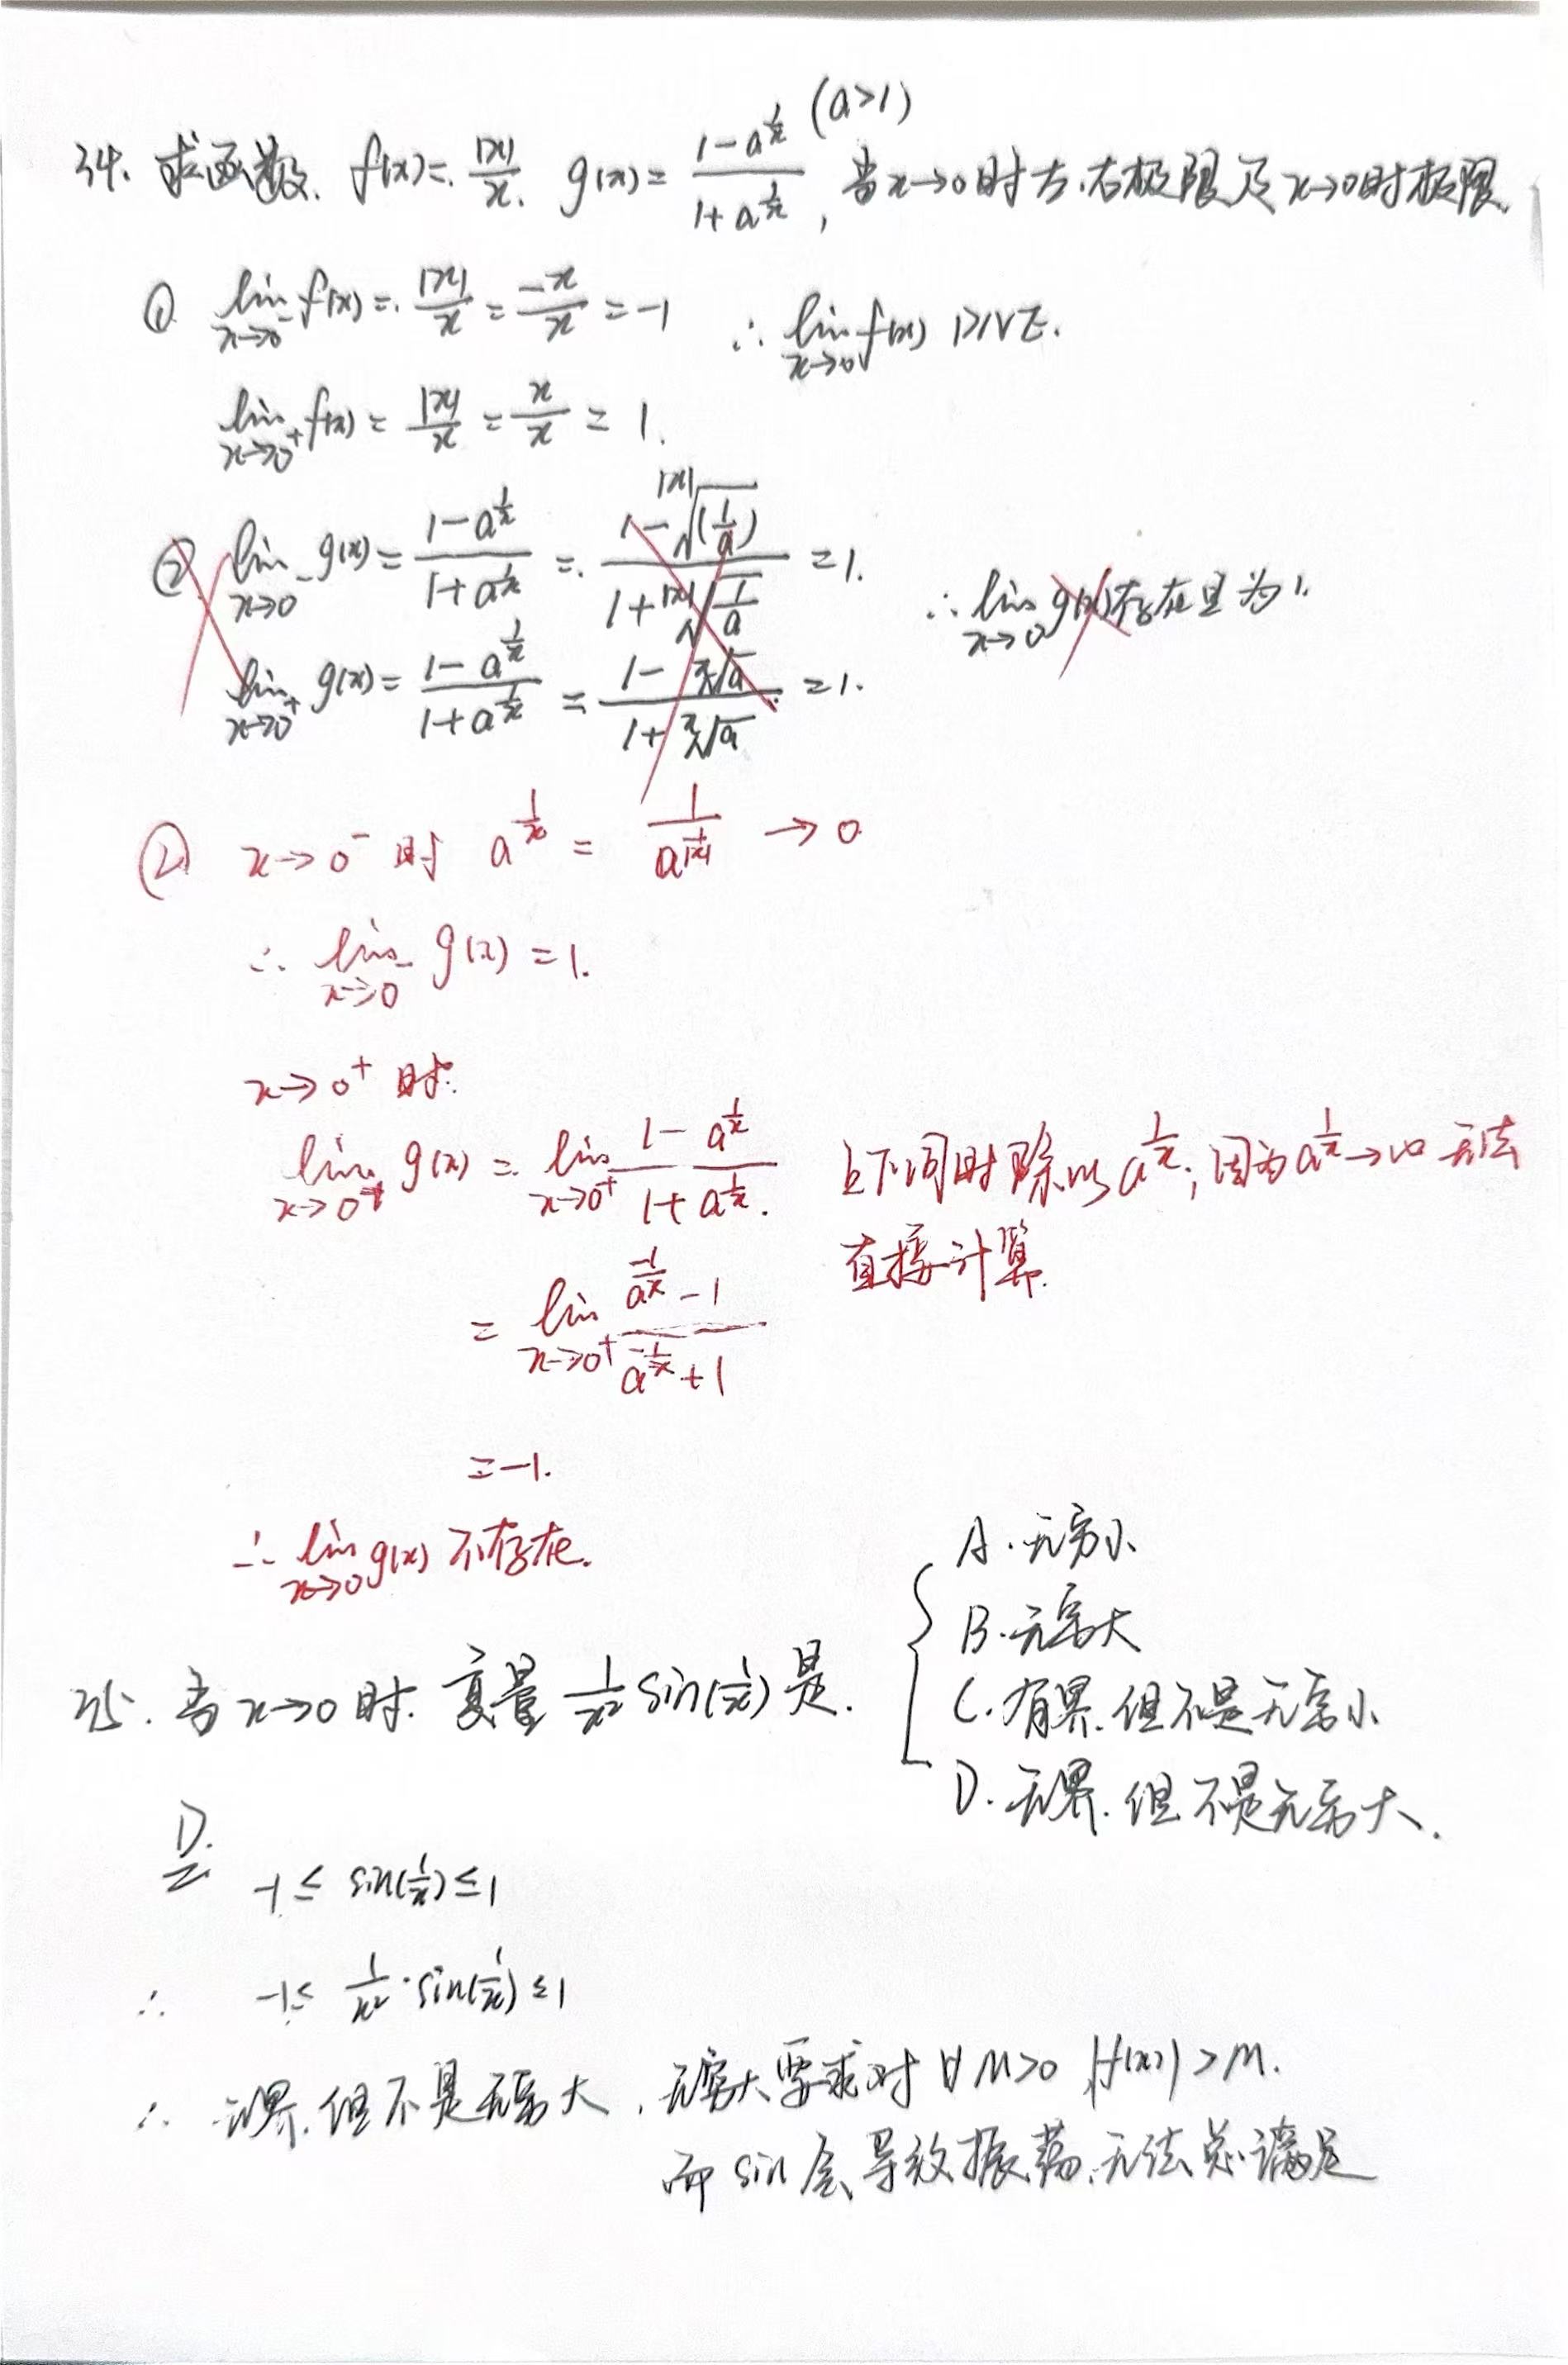 34. 求函数. f(x)=. |x|/x. g(x)= (1-a^(1/x))/(1+a^(1/x)) (a>1), 当x→0时左.右极限及x→0时极限.
① lim x→0⁻ f(x)=. |x|/x = -x/x = -1 ∴ lim x→0 f(x) DIVE.
lim x→0⁺ f(x)= |x|/x = x/x = 1.
② lim x→0⁻ g(x)= (1-a^(1/x))/(1+a^(1/x)) =. (1-^|x|√(1/a))/(1+^|x|√(1/a)) =1. ∴ lim x→0 g(x)存在且为1.
lim x→0⁺ g(x)= (1-a^(1/x))/(1+a^(1/x)) = (1-^x√a)/(1+^x√a) =1.
② x→0⁻ 时 a^(1/x) = 1/a^(1/|x|) → 0
∴ lim x→0⁻ g(x) =1.
x→0⁺ 时.
lim x→0⁺ g(x) = lim x→0⁺ (1-a^(1/x))/(1+a^(1/x)). 上下同时除以a^(1/x), 因为a^(1/x)→∞ 无法
直接计算.
= lim x→0⁺ (a^(-1/x)-1)/(a^(-1/x)+1)
=-1.
∴ lim x→0 g(x) 不存在.
35. 当x→0时. 变量 1/x² sin(1/x) 是.
A.无穷小
B.无穷大
C.有界.但不是无穷小
D.无界.但不是无穷大.
D.
-1≤ sin(1/x) ≤1
∴ -1≤ 1/x²·sin(1/x) ≤1
∴ 无界.但不是无穷大, 无穷大要求对∀M>0 |f(x)|>M.
而sin会导致振荡.无法总满足